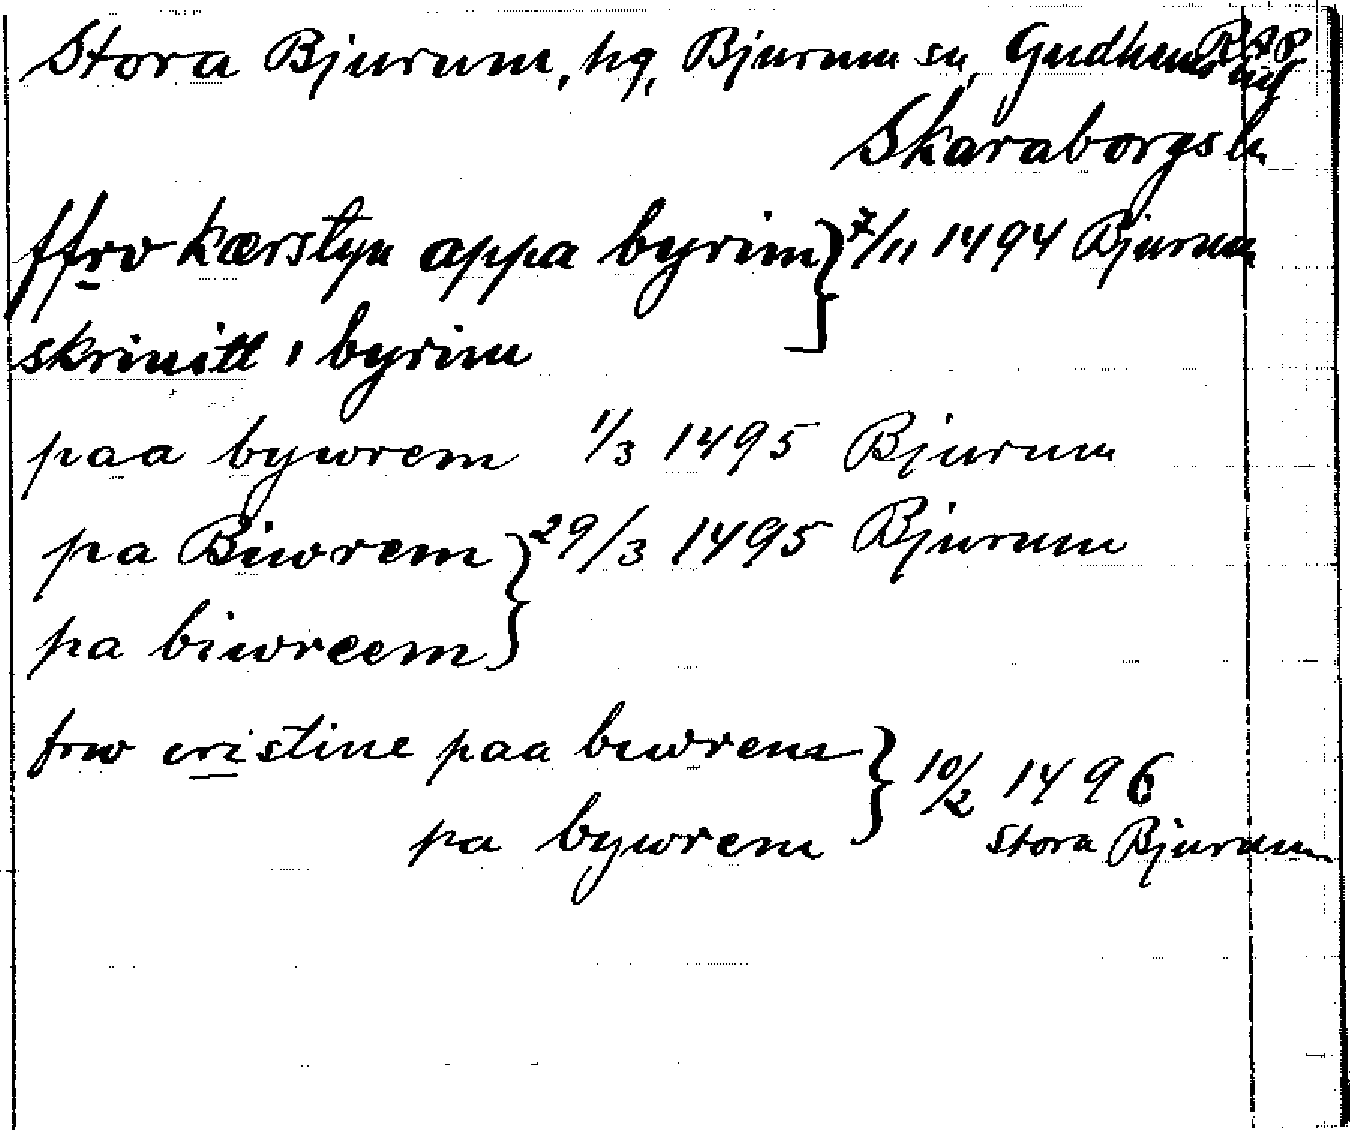 Stora Bjurum, hg, Bjurum sn, Gudhems RAP
hd
Skaraborgs ln
ffrv kærstyn appa byrim } 7/11 1494 Bjurum
skrinitt i byrim
paa bywrem 1/3 1495 Bjurum
pa Biwrem } 29/3 1495 Bjurum
pa biwreem
frw cristine paa biwrem } 10/2 1496
pa bywrem Stora Bjurum